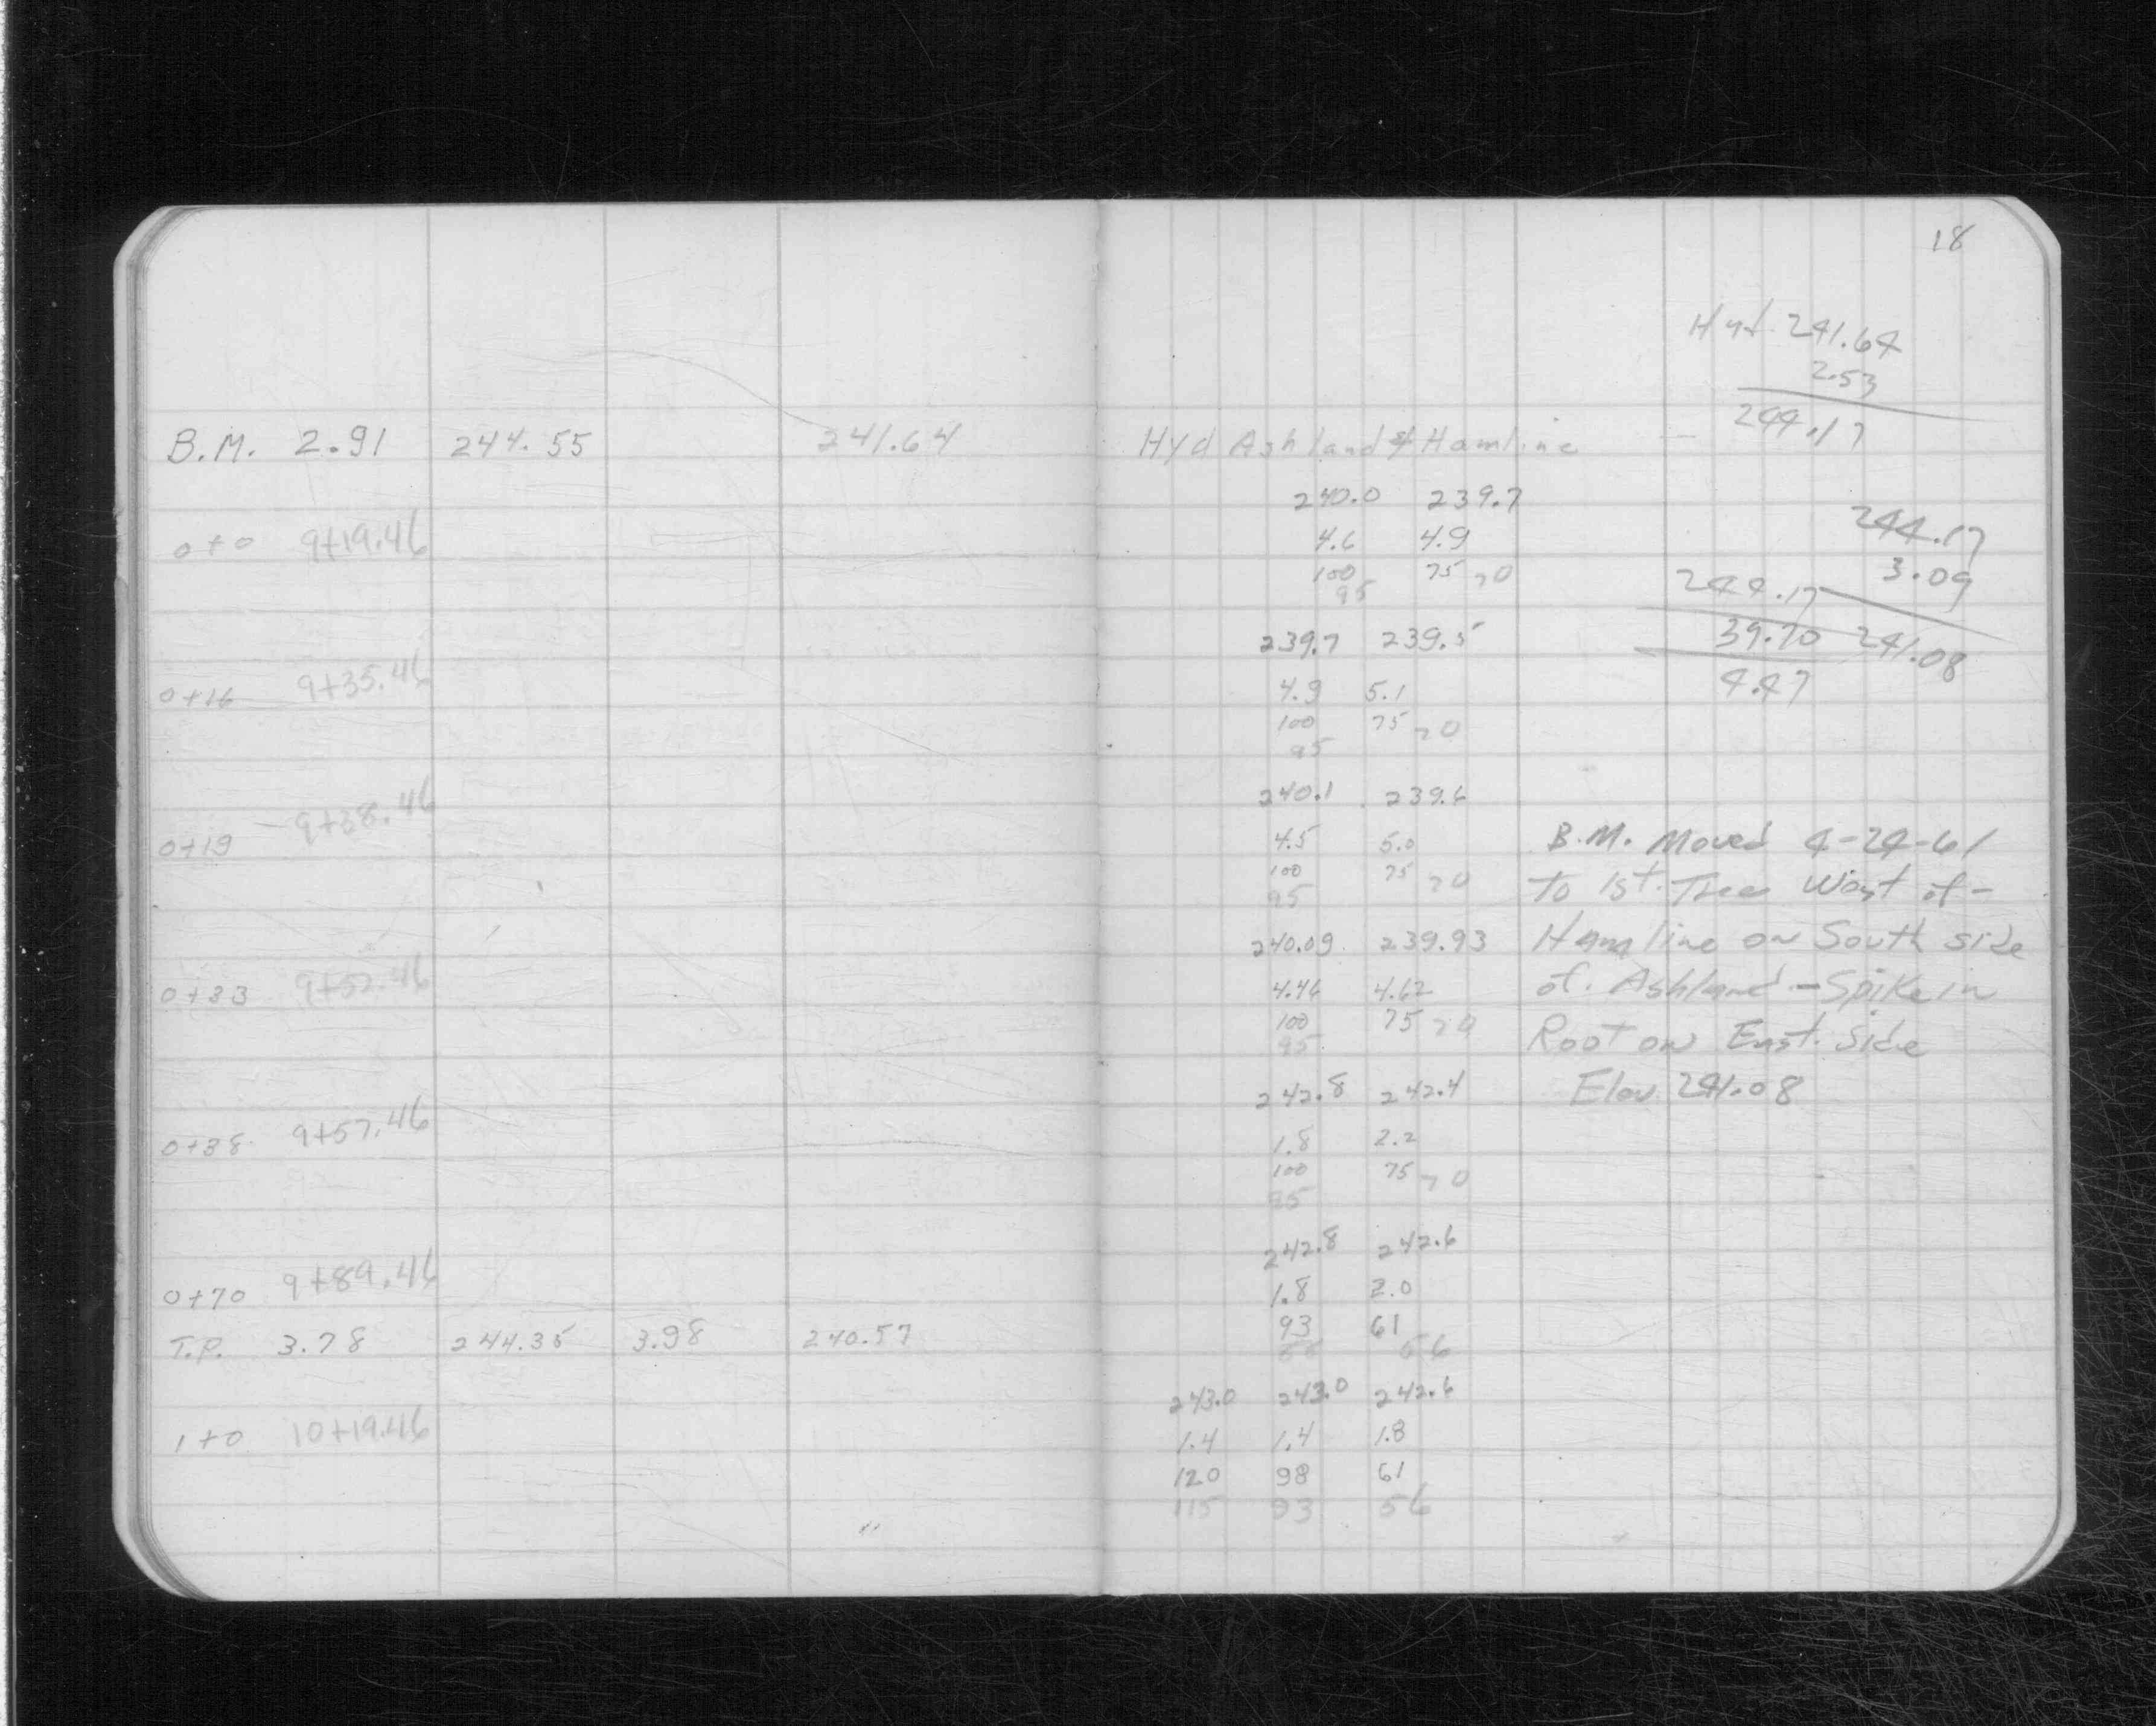 18
Hyd 241.64
2.53
244.17
B.M. 2.91 244.55 241.64 Hyd Ashland & Hamline
240.0 239.7
0+0 9+19.46 4.6 4.9
100 75 70
95
244.17
3.09
241.08
244.17
39.70
4.47
239.7 239.5
0+16 9+35.46 4.9 5.1
100 75 70
95
240.1 239.6
0+19 9+38.46 4.5 5.0
100 75 70
95
240.09 239.93
0+33 9+52.46 4.46 4.62
100 75 70
95
B.M. Moved 4-24-61
To 1st. Tree West of -
Hamline on South side
of. Ashland - Spike in
Root on East. Side
Elev 241.08
242.8 242.4
0+38 9+57.46 1.8 2.2
100 75 70
95
242.8 242.6
0+70 9+89.46 1.8 2.0
93 61
56
T.P. 3.78 244.35 3.98 240.57
243.0 243.0 242.6
1+0 10+19.46 1.4 1.4 1.8
120 98 61
115 93 56